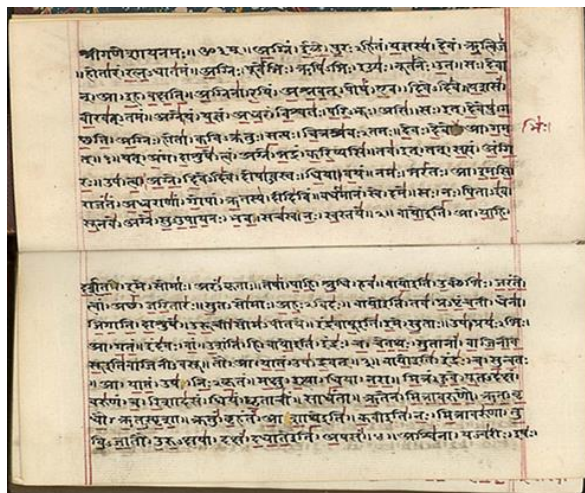 श्रीगणेशायनमः॥ॐ३म्॥ अग्निं। ईळे। पुरःऽहितं। यज्ञस्य। देवं। ऋत्विजं
॥होतारं। रत्नऽधातमं॥ अग्निः। पूर्वेभिः। ऋषिऽभिः। ईड्यः। नूतनैः। उत। सः। देवा
न्। आ। इह। वक्षति॥ अग्निना। रयिं। अश्नवत्। पोषं। एव। दिवेऽदिवे। यशसं
वीरवत्ऽतमं॥ अग्ने। यं। यज्ञं। अध्वरं। विश्वतः। परिऽभूः। असि। सः। इत्। देवेषु। ग
च्छति॥ अग्निः। होता। कविऽक्रतुः। सत्यः। चित्रश्रवःऽतमः॥ देवः। देवेभिः। आ। गम
त्॥१॥ यत्। अंग। दाशुषे। त्वं। अग्ने। भद्रं। करिष्यसि। तव। इत्। तत्। सत्यं। अंगि
रः॥ उप। त्वा। अग्ने। दिवेऽदिवे। दोषाऽवस्तः। धिया। वयं। नमः। भरंतः। आ। इमसि
राजंतं। अध्वराणां। गोपां। ऋतस्य। दीदिविं। वर्धमानं। स्वे। दमे॥ सः। नः। पिताऽइव
सूनवे। अग्ने। सुऽउपायनः। भव। सचस्व। नः। स्वस्तये॥२॥ वायो इति। आ। याहि।
दर्शत। इमे। सोमाः। अरंऽकृताः॥ तेषां। पाहि। श्रुधि। हवं॥ वायो इति। उक्थेभिः। जरंते
त्वां। अच्छ। जरितारः। सुतऽसोमाः। अहःऽविदः॥ वायो इति। तव। प्रऽपृंचती। धेना
जिगाति। दाशुषे। उरूची। सोमऽपीतये॥ इंद्रवायू इति। इमे। सुताः। उप। प्रयःऽभिः।
आ। गतं। इंदवः। वां। उशंति। हि॥ वायो इति। इंद्रः। च। चेतथः। सुतानां। वाजिनीव
सू इति वाजिनीऽवसू। तौ। आ। यातं। उप। द्रवत्॥३॥ वायो इति। इंद्रः। च। सुन्वतः
॥आ। यातं। उप। निःऽकृतं। मक्षु। इत्था। धिया। नरा॥ मित्रं। हुवे। पूतऽदक्षं
वरुणं। च। रिशादसं। धियं। घृताचीं। साधंता॥ ऋतेन। मित्रावरुणौ। ऋतऽवृ
धौ। ऋतऽस्पृशा। क्रतुं। बृहंतं। आशाथे इति॥ कवी इति। नः। मित्रावरुणा। तु
विऽजातौ। उरुऽक्षया। दक्षं। दधाते इति। अपसं॥४॥ अश्विना। यज्वरीः। इषः।